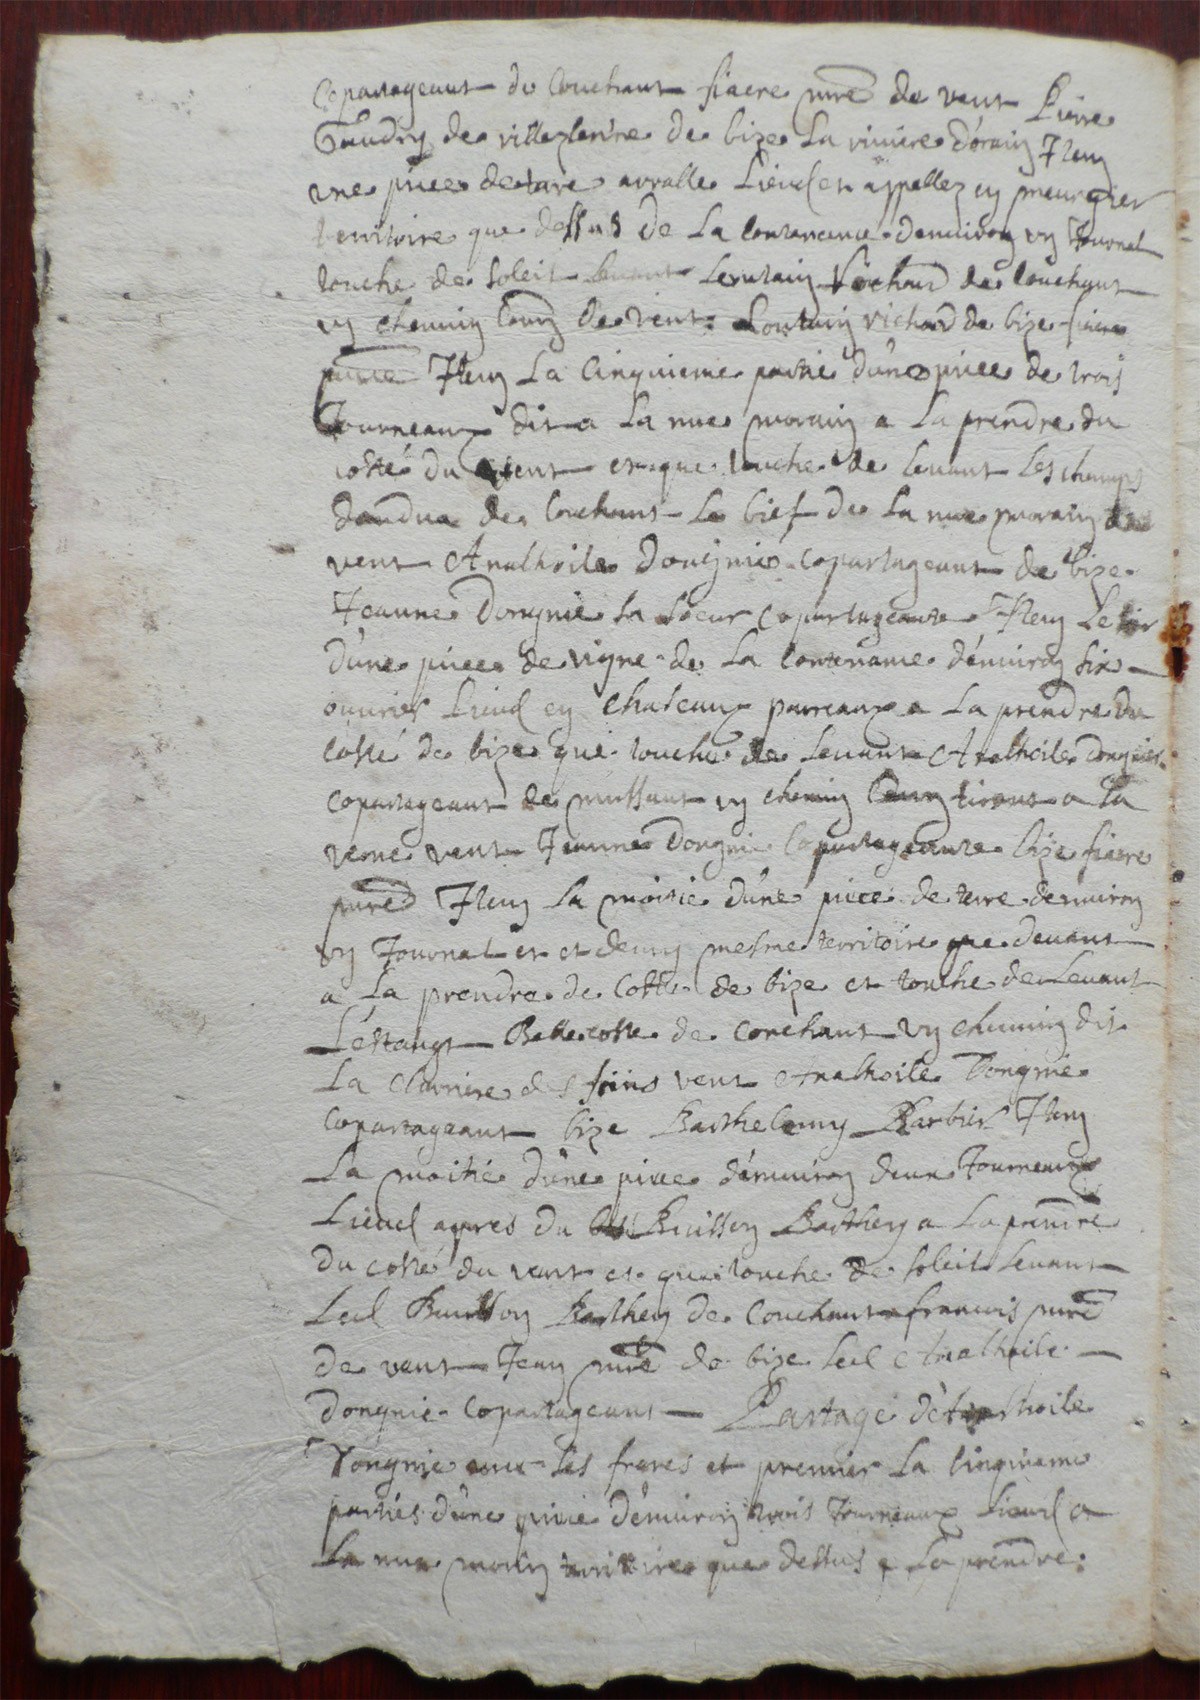 Copartageant de Couchant fiacre puré de vent Pierre
Gaudry de villezlerine de bize La riviere d'orain Item
une piece de tare arralle Lieudet appellez en meurgier
territoire que dessus de La Contenence d'enuiron un Journal
touche de soleil Leuant Lontain Vichard de Couchant
un chemin Comung de vent Lontain vichard de bize fiacre
puree Item La Cinquieme partie d'une piece de trois
Journeaux dit a La nue morain a La prendre du
costé du vent et que touche de Leuant Les champs
dandua de Couchant Le bief de La nue morain de
vent Anathoile Dongnie Copartageant de bize
Jeanne Dongnie sa soeur Copartageante Item Le tier
d'une piece de vigne de La Contenance d'enuiron six
ouurier Lieud en Chateaux parreaux a La prendre du
Costé de bize que touche de Leuant Anathoile dongnier
Copartageant de mussant un chemin Comung tirant a La
verne vent Jeanne dongnie Copartageante bize fiacre
pured Item La moitie d'une piece de terre d'enuiron
un Journal et et demy mesme territoire que deuant
a La prendre de Costte de bize et touche de Leuant
L'estangt Belle coste de Couchant un chuming dit
La Charriere des foins vent Anathoile Dongnie
Copartageant bize Barthelemy Barbier Item
La moitié d'une piece d'enuiron deux Journeaux
Lieud apres du buisson Barthey a La prendre
du costé du vent et que touche de soleil Leuant
Led Buisson Barthey de Couchant francois puré
de vent Jean puré de bize Led Anathoile
dongnie Copartageant Partage d'Anathoile
Dongnie auec ses freres et premier La Cinquieme
parties d'une piece d'enuiron trois Journeaux Lieud a
La nue morin territoire que dessus a La prendre